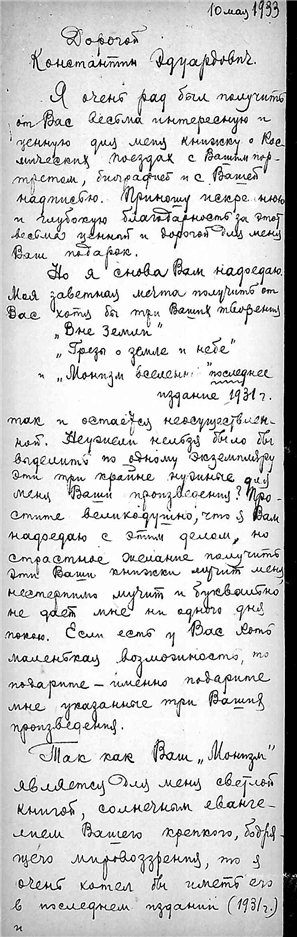 10 мая 1933
Дорогой
Константин Эдуардович.
Я очень рад был получить
от Вас весьма интересную и
ценную для меня книжку о Кос-
мических поездах с Вашим пор-
третом, биографией и с Вашей
надписью. Приношу искреннюю
и глубокую благодарность за этот
весьма ценный и дорогой для меня
Ваш подарок.
Но я снова Вам надоедаю.
Моя заветная мечта получить от
Вас хотя бы три Ваших творения
„Вне Земли"
„Грезы о земле и небе"
и „Монизм вселенной" последнее
издание 1931 г.
так и остаётся неосуществлен-
ной. Неужели нельзя было бы
выделить по одному экземпляру
эти три крайне нужные для
меня Ваши произведения? Про-
стите великодушно, что я Вам
надоедаю с этим делом, но
страстное желание получить
эти Ваши книжки мучит меня
нестерпимо мучит и буквально
не дает мне ни одного дня
покою. Если есть у Вас хоть
маленькая возможность, то
подарите – именно подарите
мне указанные три Ваших
произведения.
Так как Ваш „Монизм"
является для меня светлой
книгой, солнечным еванге-
лием Вашего крепкого, бодря-
щего мировоззрения, то я
очень хотел бы иметь его
в последнем издании (1931 г.)
и